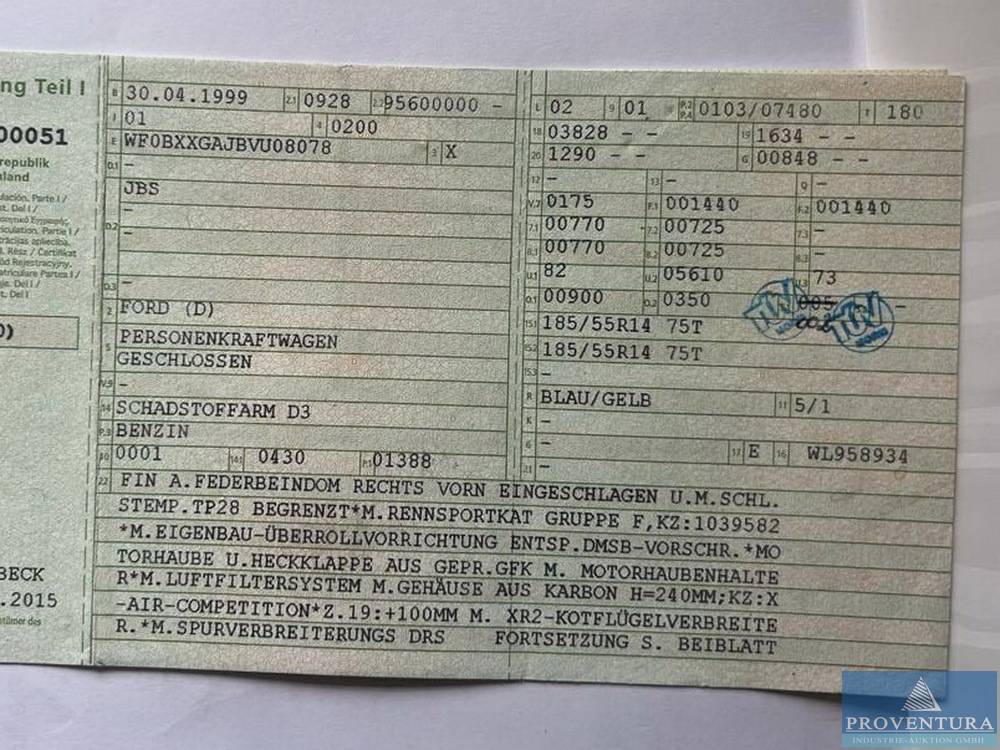 ng Teil I
00051
republik
land
B 30.04.1999 2.1 0928 2.2 95600000 -
J 01 4 0200
E WF0BXXGAJBVU08078 3 X
D.1 -
JBS
D.2 -
-
D.3 -
2 FORD (D)
5 PERSONENKRAFTWAGEN
GESCHLOSSEN
V.9 -
14 SCHADSTOFFARM D3
P.3 BENZIN
10 0001 14.1 0430 P.1 01388
L 02 9 01 P.2 P.4 0103/07480 T 180
18 03828 - - 19 1634 - -
20 1290 - - G 00848 - -
12 - 13 - Q -
V.7 0175 F.1 001440 F.2 001440
7.1 00770 7.2 00725 7.3 -
8.1 00770 8.2 00725 8.3 -
U.1 82 U.2 05610 U.3 73
O.1 00900 O.2 0350 005 -
002
15.1 185/55R14 75T
15.2 185/55R14 75T
15.3 -
R BLAU/GELB 11 5/1
K -
6 - 17 E 16 WL958934
21 -
22 FIN A.FEDERBEINDOM RECHTS VORN EINGESCHLAGEN U.M.SCHL.
STEMP.TP28 BEGRENZT*M.RENNSPORTKAT GRUPPE F,KZ:1039582
*M.EIGENBAU-ÜBERROLLVORRICHTUNG ENTSP.DMSB-VORSCHR.*MO
TORHAUBE U.HECKKLAPPE AUS GEPR.GFK M. MOTORHAUBENHALTE
R*M.LUFTFILTERSYSTEM M.GEHÄUSE AUS KARBON H=240MM;KZ:X
-AIR-COMPETITION*Z.19:+100MM M. XR2-KOTFLÜGELVERBREITE
R.*M.SPURVERBREITERUNGS DRS FORTSETZUNG S. BEIBLATT
BECK
.2015
PROVENTURA
INDUSTRIE-AUKTION GMBH